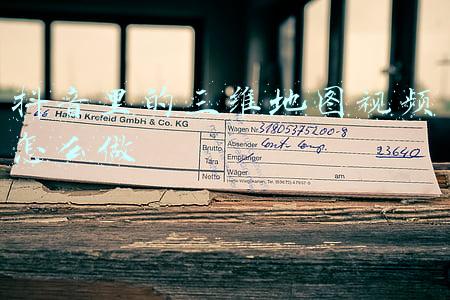 抖音里的三维地图视频
怎么做
Hafen Krefeld GmbH & Co. KG
kg
Brutto
Tara
Netto
Wagen Nr. 31805375200-8
Absender
Empfänger 23640
Wäger am